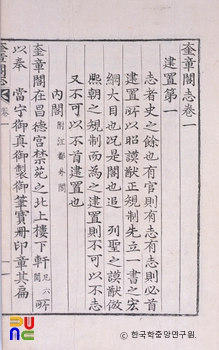 奎章閣志卷
建置第一
志者史之餘也有官則有志有志則必首
建置所以昭謨猷正規制先立一書之宏
綱大目也况是閣也追 列聖之謨猷倣
熙朝之規制而爲之建置則不可以不志
又不可以不首建置也
內閣
奎章閣在昌德宮禁苑之北上樓下軒
以奉 當宁御眞御製御筆寶冊印章其扁
한국학중앙연구원